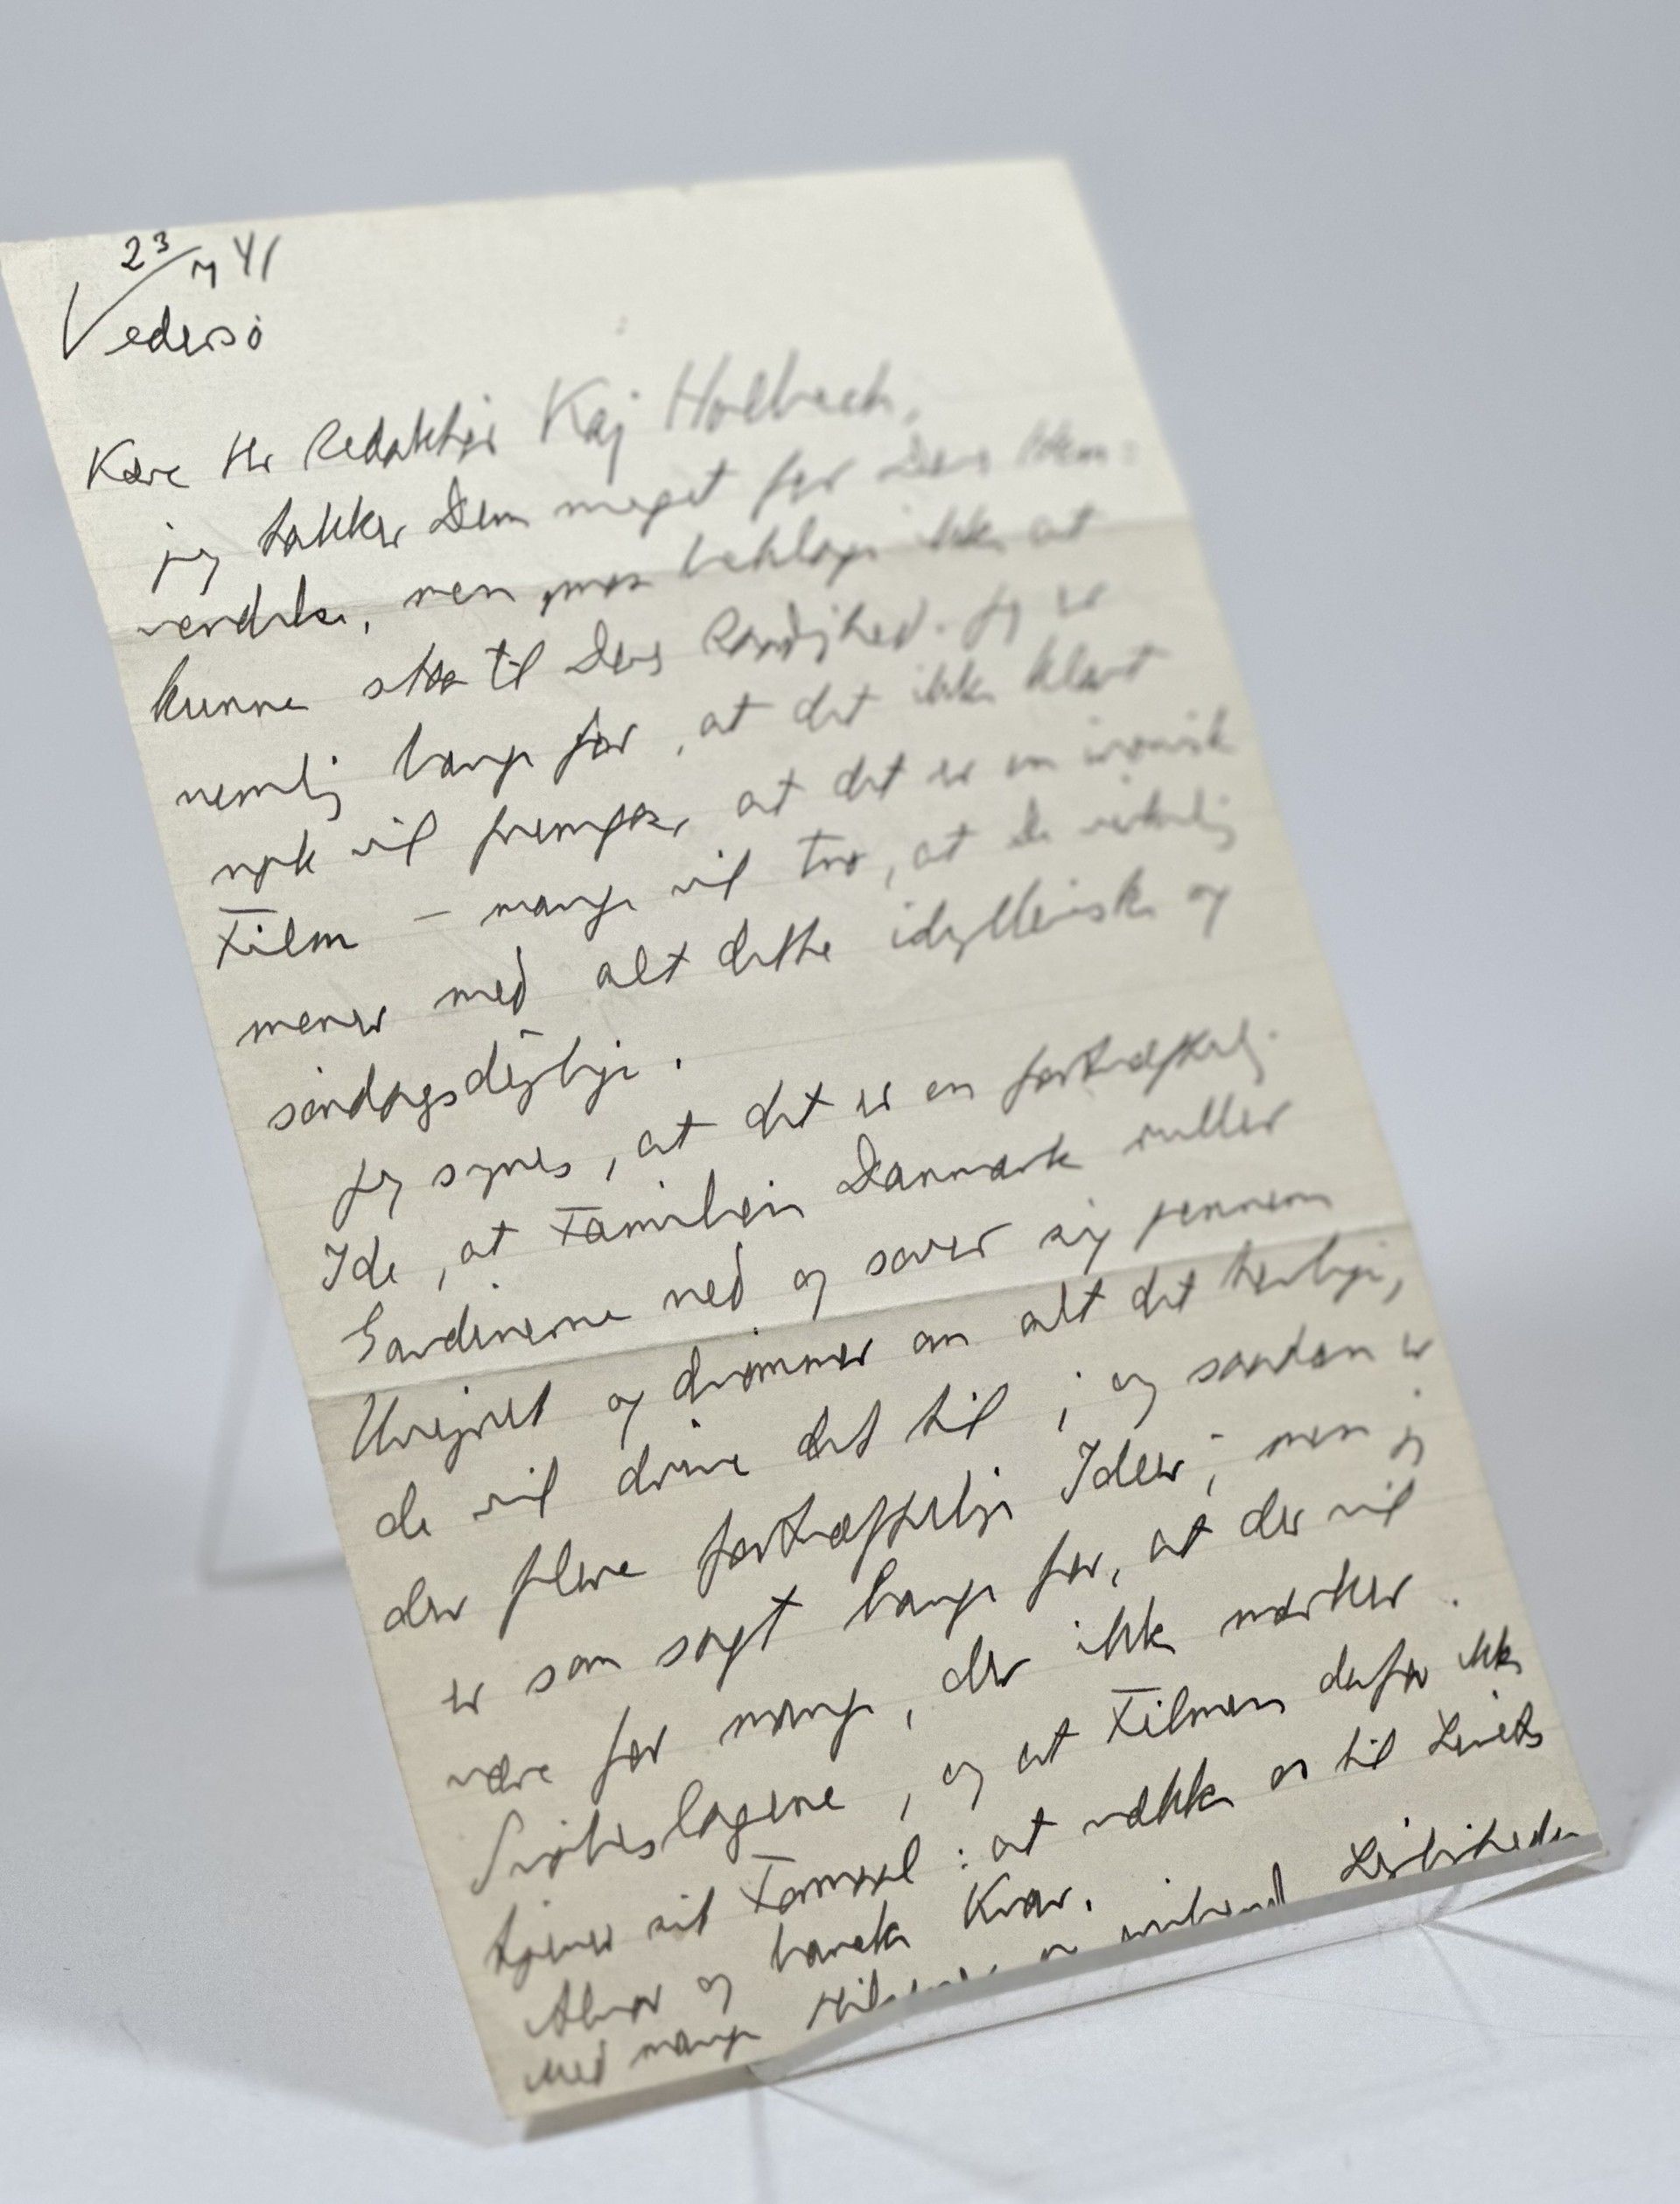 23/7 41
Vedersø
Kære Hr Redaktør Kaj Holbech,
jeg takker Dem meget for Deres Hen=
vendelse, men maa beklage ikke at
kunne staa til Deres Raadighed. Jeg er
nemlig bange for, at det ikke klart
nok vil fremgaa, at det er en ironisk
Film – mange vil tro, at De virkelig
mener med alt dette idylleriske og
søndagsdejlige.
Jeg synes, at det er en fortræffelig
Ide, at Familien Danmark ruller
Gardinerne ned og sover sig gennem
Uvejret og drømmer om alt det herlige,
de vil drive det til; og saadan er
der flere fortræffelige Ideer; men jeg
er som sagt bange for, at der vil
være for mange, der ikke mærker
Svøbeslagene, og at Filmen derfor ikke
tjener sit Formaal: at vække os til Livets
Alvor og barske Krav.
Med mange Hilsener og